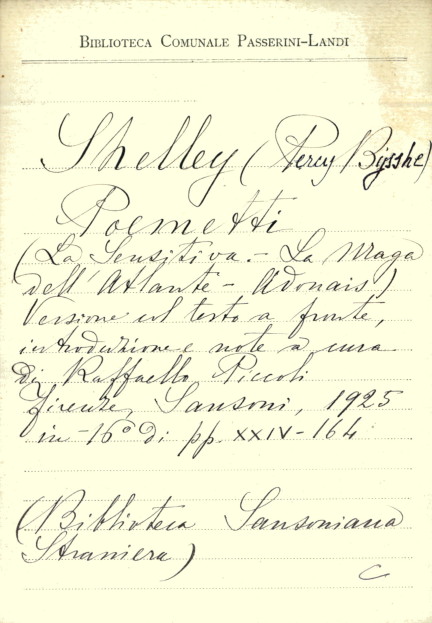 BIBLIOTECA COMUNALE PASSERINI-LANDI
Shelley (Percy Bysshe)
Poemetti
(La Sensitiva. - La Maga
dell' Atlante - Adonais)
Versione col testo a fronte,
introduzione e note a cura
di Raffaello Piccoli
Firenze, Sansoni, 1925
in-16° di pp. XXIV-164
(Biblioteca Sansoniana
Straniera)
C